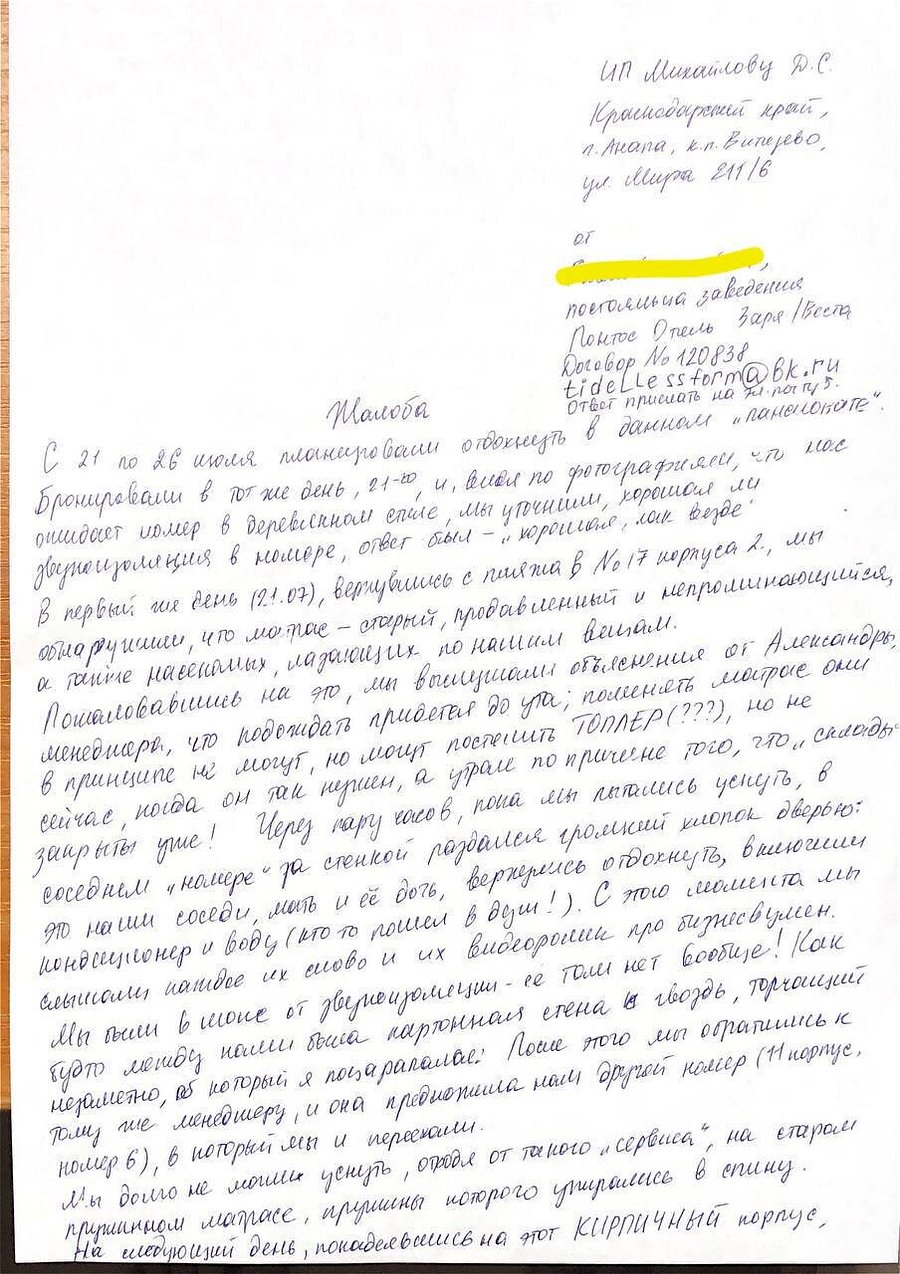 ИП Михайлову Д.С.
Краснодарский край,
г. Анапа, к.п. Витязево,
ул. Мира 211/6
от
постояльца заведения
Понтос Отель Заря/Веста
Договор № 120838
tidelessform@bk.ru
Ответ прислать на эл. почту.
Жалоба
С 21 по 26 июля планировали отдохнуть в данном „пансионате".
Бронировали в тот же день, 21-го, и, видя по фотографиям, что нас
ожидает номер в деревянном стиле, мы уточнили, хорошая ли
звукоизоляция в номере, ответ был – „хорошая, как везде".
В первый же день (21.07), вернувшись с пляжа в №17 корпуса 2., мы
обнаружили, что матрас – старый, продавленный и непроминающийся,
а также насекомых, лазающих по нашим вещам.
Пожаловавшись на это, мы выслушали объяснения от Александры,
менеджера, что подождать придется до утра; поменять матрас они
в принципе не могут, но могут постелить ТОППЕР(???), но не
сейчас, когда он так нужен, а утром по причине того, что „склады
закрыты уже! Через пару часов, пока мы пытались уснуть, в
соседнем „номере" за стенкой раздался громкий хлопок дверью:
это наши соседи, мать и её дочь, вернулись отдохнуть, включили
кондиционер и воду (кто то пошел в душ!). С этого момента мы
слышали каждое их слово и их видеоролик про бизнесвумен.
Мы были в шоке от звукоизоляции – её толи нет вообще! Как
будто между нами была картонная стена и гвоздь, торчащий
незаметно, об который я поцарапалась. После этого мы обратились к
тому же менеджеру, и она предложила нам другой номер (11 корпус,
номер 6), в который мы и переехали.
Мы долго не могли уснуть, отходя от такого „сервиса", на старом
пружинном матрасе, пружины которого упирались в спину.
На следующий день, понадеявшись на этот КИРПИЧНЫЙ корпус,